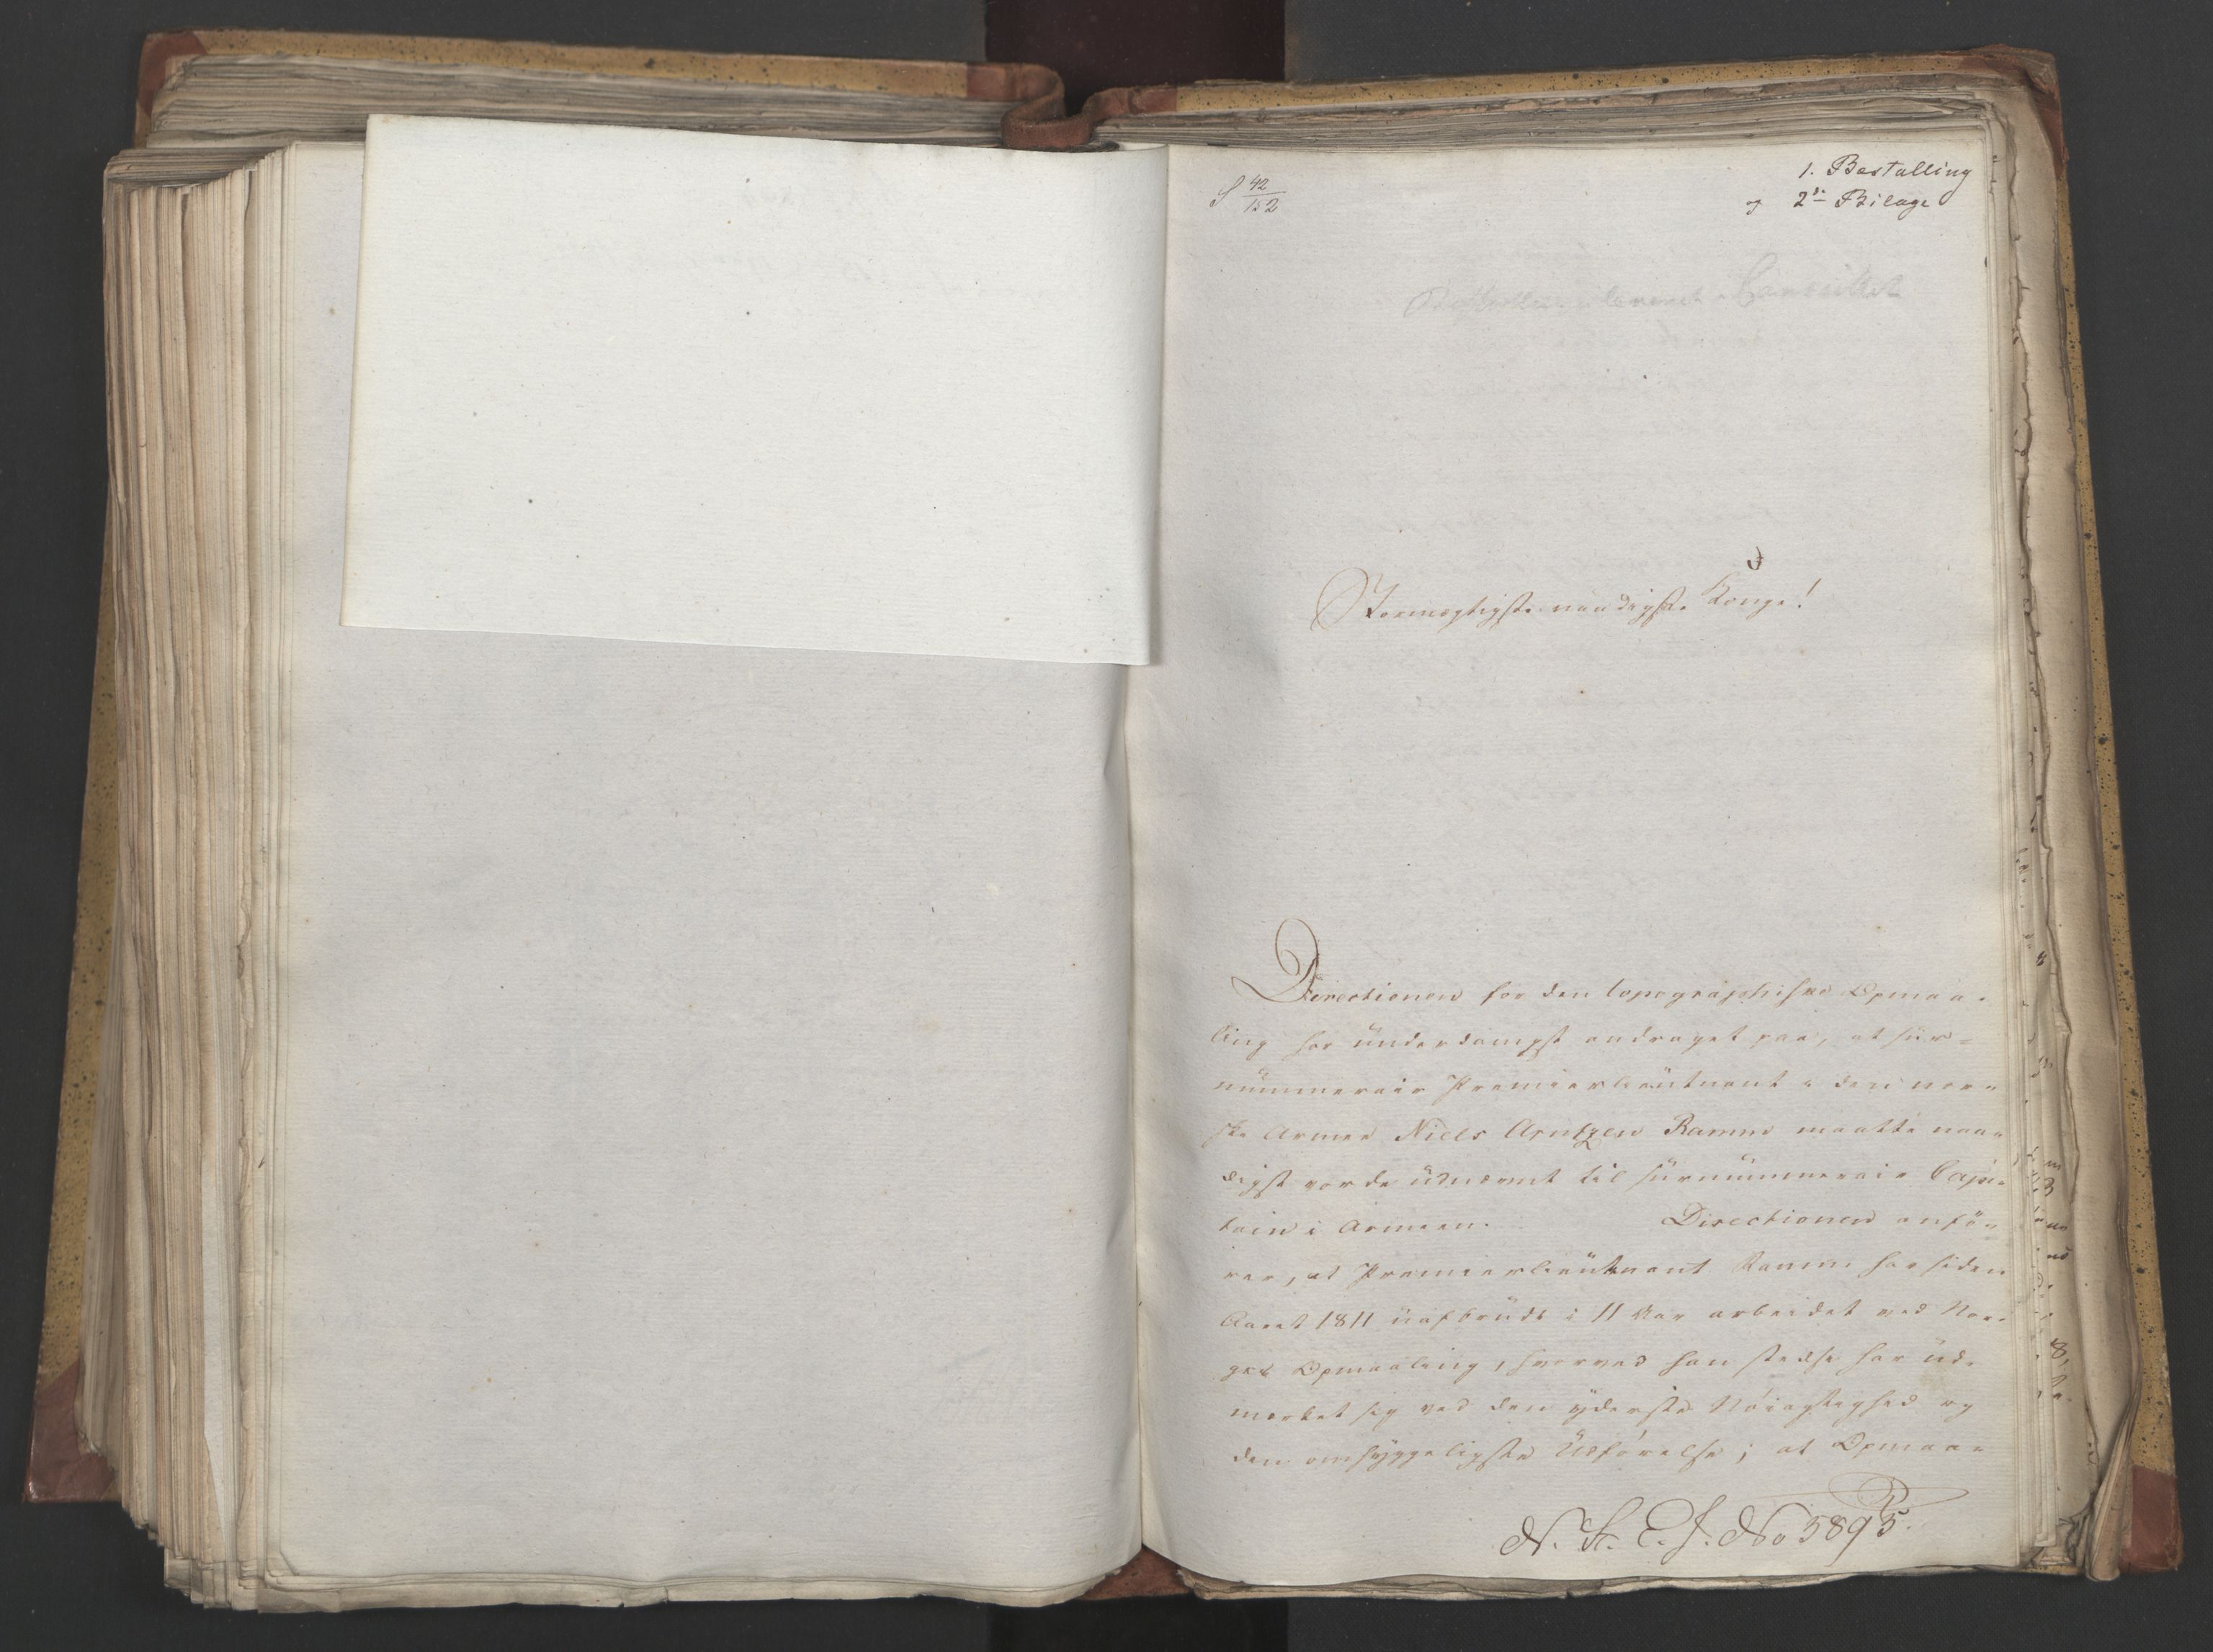 S 42/152
1. Bestalling
og 2de Bilage
Stormægtigste naadigste Konge!
Directionen for den topographiske Opmaa-
ling har underdanigst andraget paa, at sur-
nummerair Premierlieutnant i den nor-
ske Armee Niels Arntzen Ramm maatte naa-
digst vorde udnævnt til surnummerair Capi-
tain i Armeen. Directionen anfö-
rer, at Premierlieutnant Ramm har siden
Aaret 1811 uafbrudt i 11 Aar arbeidet ved Nor-
ges Opmaaling, hvorved han stedse har ud-
mærket sig ved den yderste Nöiagtighed og
den omhyggeligste Udförelse; at Opmaa-
N. St. E. J. No 5895.